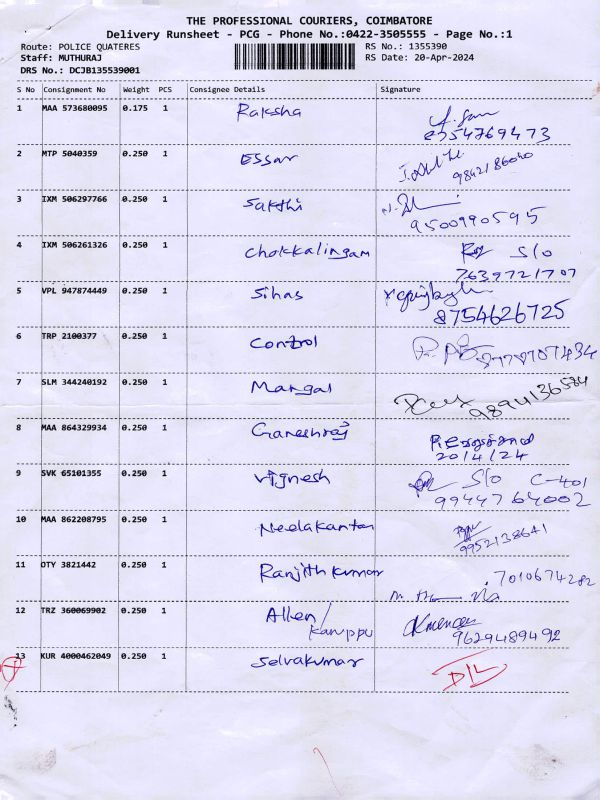 THE PROFESSIONAL COURIERS, COIMBATORE
Delivery Runsheet - PCG - Phone No.:0422-3505555 - Page No.:1
Route: POLICE QUATERES RS No.: 1355390
Staff: MUTHURAJ RS Date: 20-Apr-2024
DRS No.: DCJB135539001
S No Consignment No Weight PCS Consignee Details Signature
1 MAA 573680095 0.175 1 Raksha
2 MTP 5040359 0.250 1 Essar
9842186040
3 IXM 506297766 0.250 1 Sakthi
9500990595
4 IXM 506261326 0.250 1 Chokkalingam S/o
7639721707
5 VPL 947874449 0.250 1 Sihas
8754626725
6 TRP 2100377 0.250 1 Control
7 SLM 344240192 0.250 1 Mangal
9894136584
8 MAA 864329934 0.250 1 Ganeshraj
20/4/24
9 SVK 65101355 0.250 1 Vignesh S/o C-401
9944764002
10 MAA 862208795 0.250 1 Neelakantan
9952138641
11 OTY 3821442 0.250 1 Ranjith kumar
7010674282
12 TRZ 360069902 0.250 1 Allen/
Karuppu
9629489492
13 KUR 4000462049 0.250 1 Selvakumar
D/L